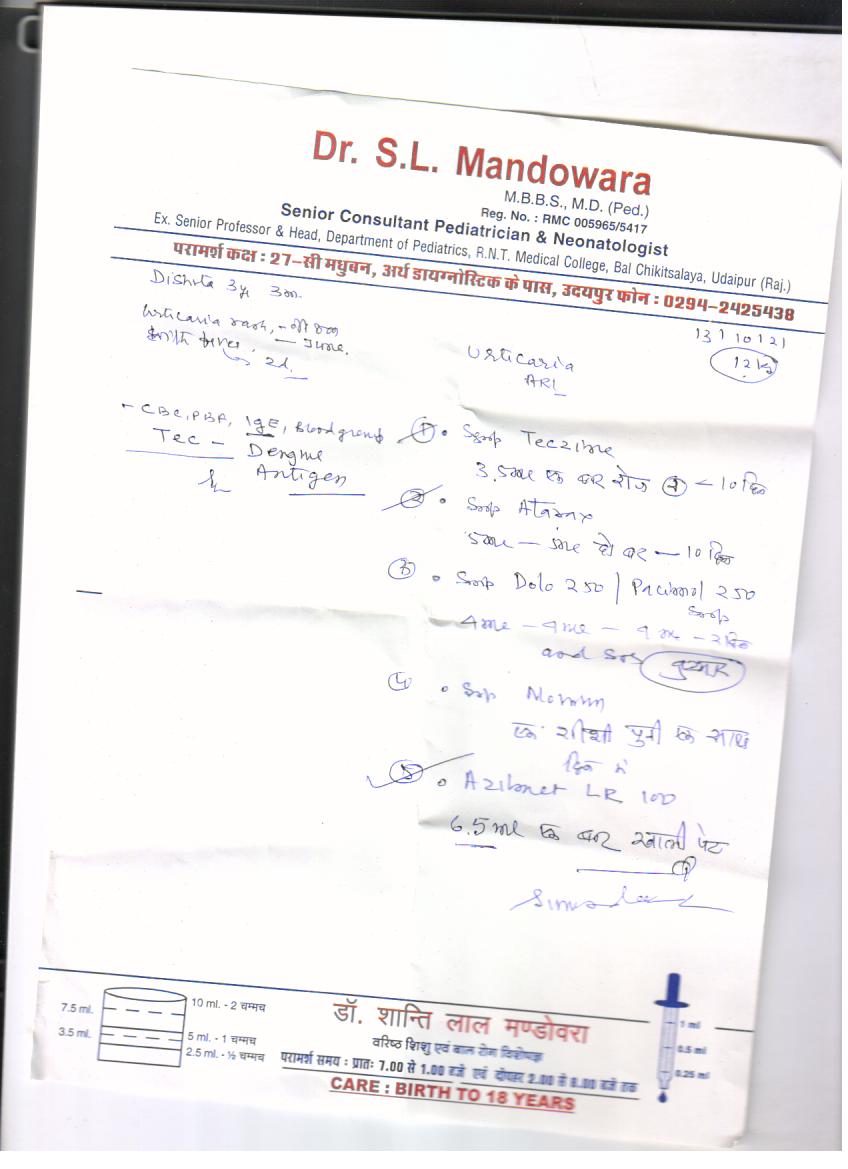 Dr. S.L. Mandowara
M.B.B.S., M.D. (Ped.)
Reg. No. : RMC 005965/5417
Senior Consultant Pediatrician & Neonatologist
Ex. Senior Professor & Head, Department of Pediatrics, R.N.T. Medical College, Bal Chikitsalaya, Udaipur (Raj.)
परामर्श कक्ष : 27-सी मधुबन, अर्थ डायग्नोस्टिक के पास, उदयपुर फोन : 0294-2425438
3y 3m
13/10/21
12 kg
Urticaria rash,
June.
2d.
Urticaria
ARI
CBC, PBF, IgE, Blood group
TEC - Dengue
Antigen
① Syrup Teczine
3.5ml एक बार रोज - 10 दिन
② Syrup Atarax
5ml - 5ml दो बार - 10 दिन
③ Syrup Dolo 250 / Pacimol 250
Syrup
4ml - 4ml - 4ml - 2 दिन
and SOS बुखार
④ Syrup
एक शीशी के साथ
दिन में
⑤ LR 100
6.5ml एक बार खाली पेट
7.5 ml.
3.5 ml.
10 ml. - 2 चम्मच
5 ml. - 1 चम्मच
2.5 ml. - ½ चम्मच
डॉ. शान्ति लाल मण्डोवरा
वरिष्ठ शिशु एवं बाल रोग विशेषज्ञ
परामर्श समय : प्रातः 7.00 से 1.00 बजे एवं दोपहर 2.00 से 6.00 बजे तक
CARE : BIRTH TO 18 YEARS
1 ml
0.5 ml
0.25 ml